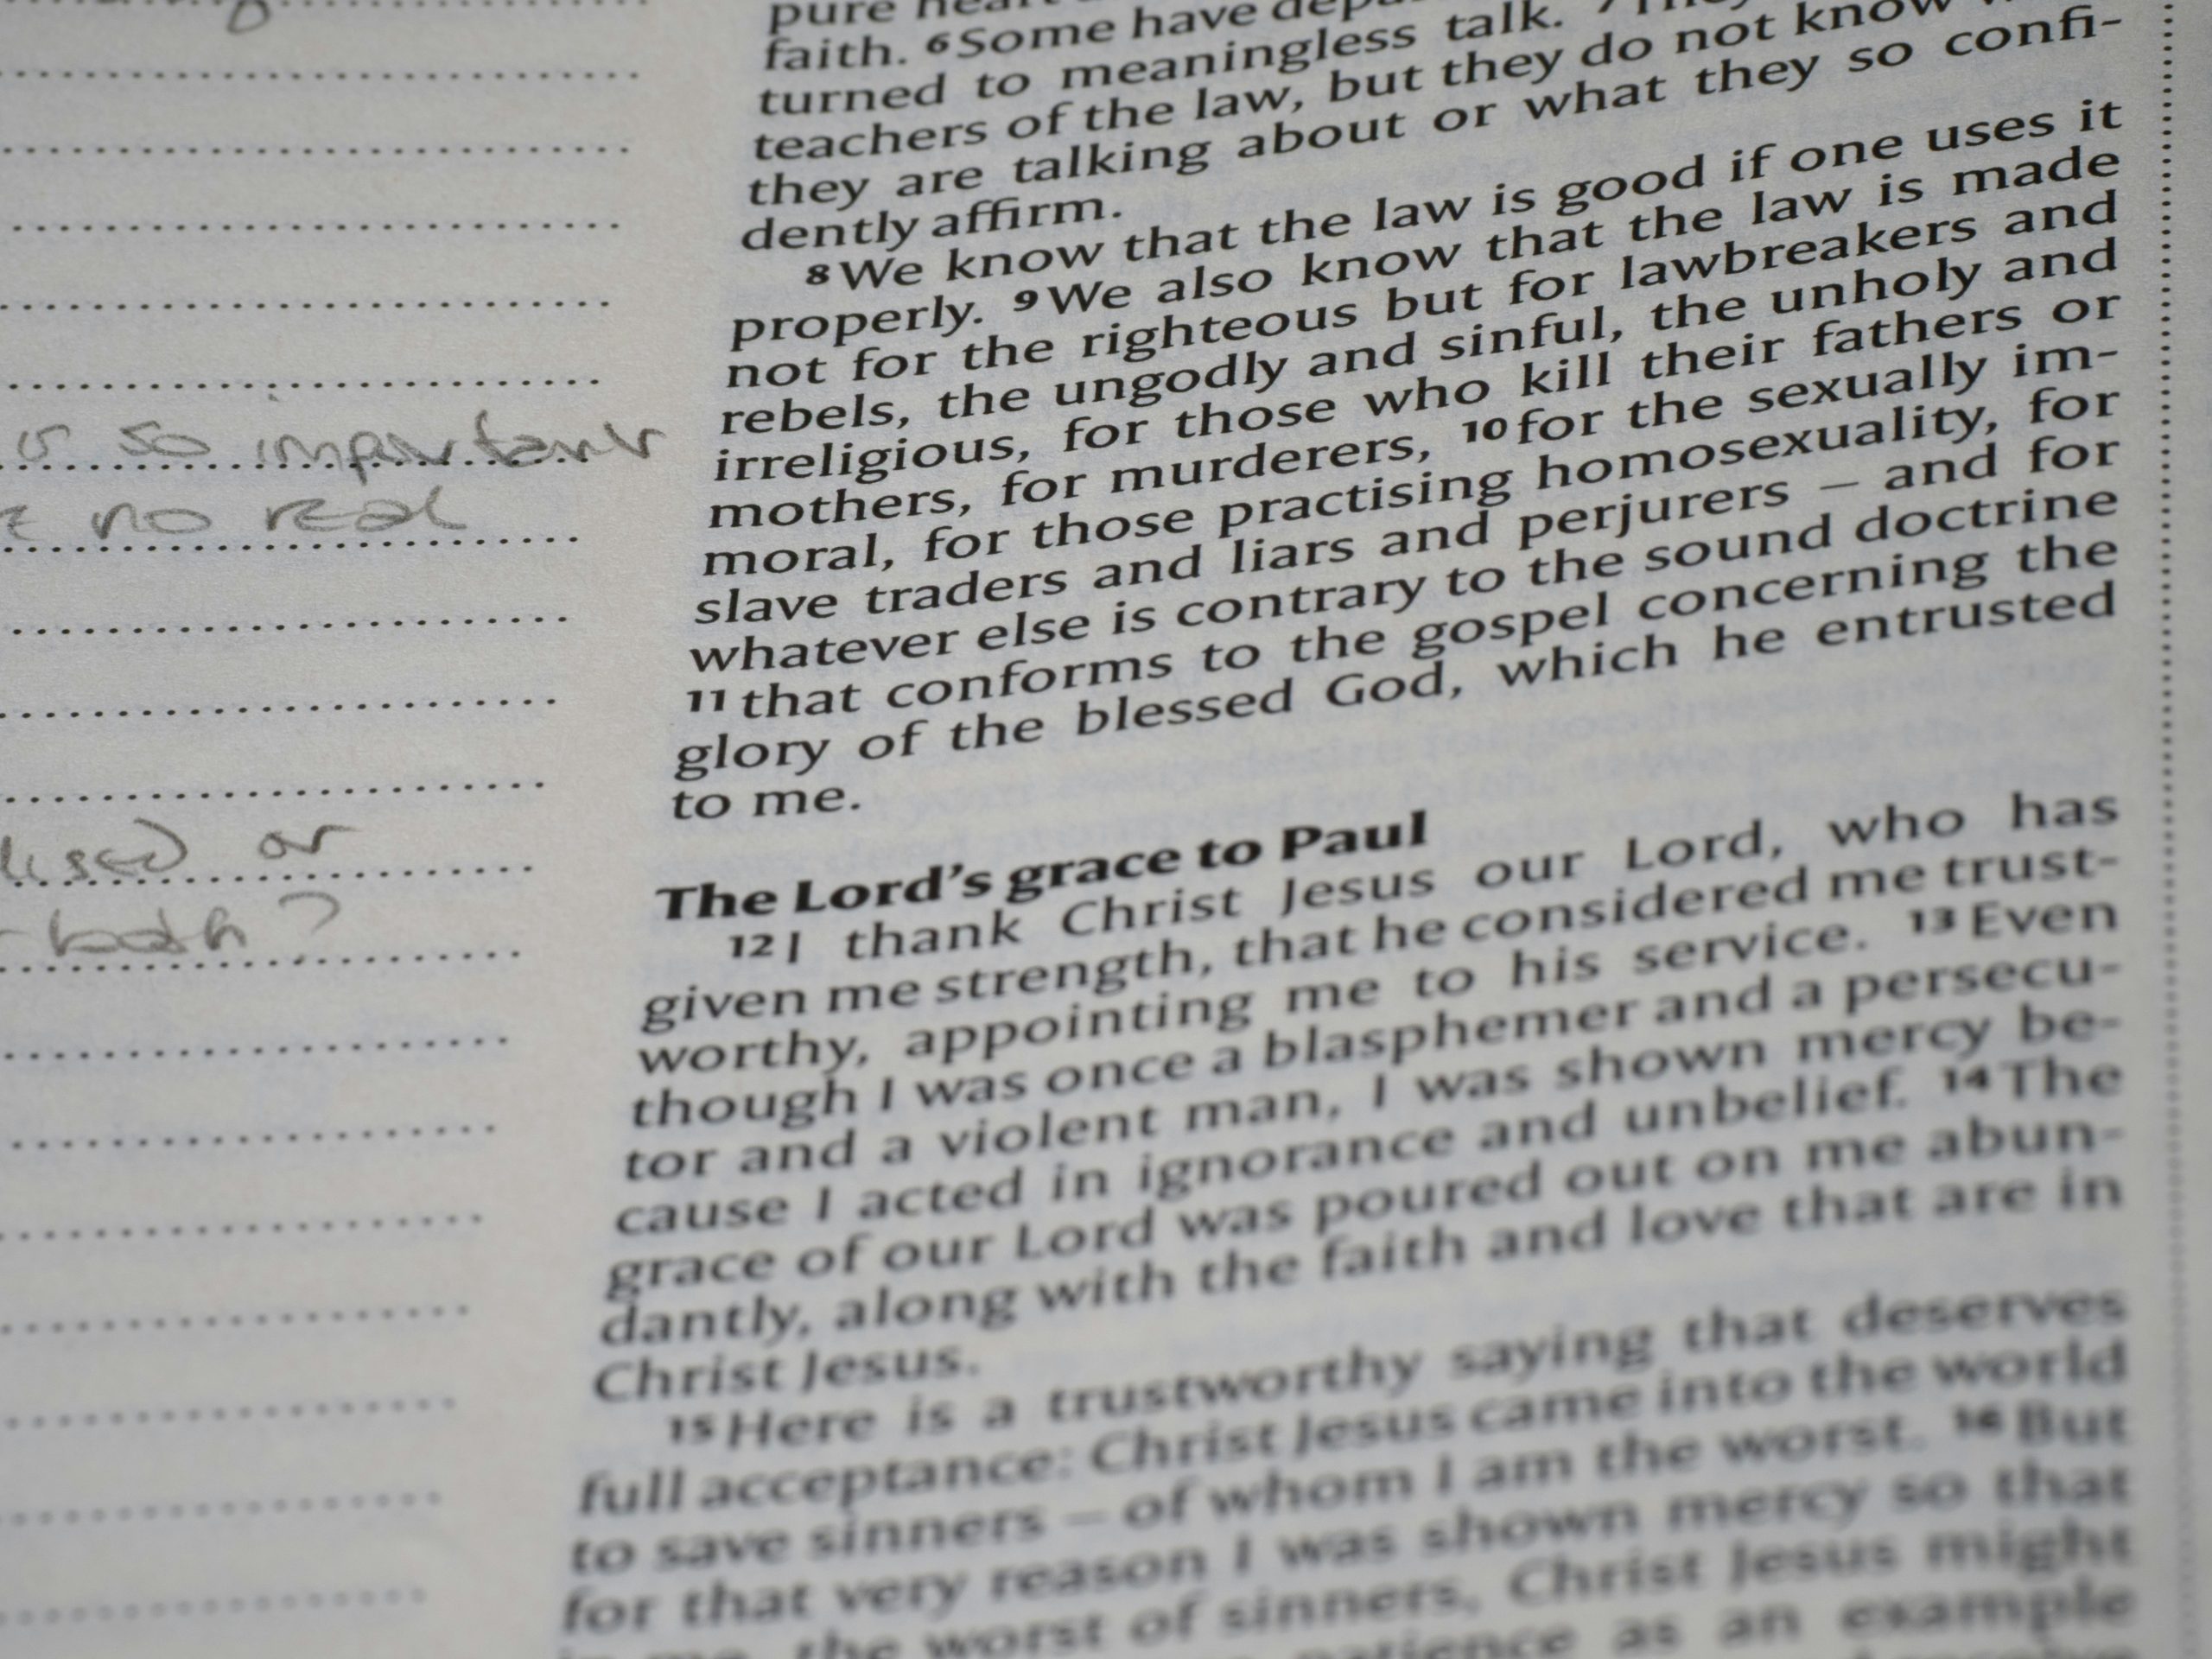 is so important
no real
used or
both?
pure
faith. 6 Some have
turned to meaningless talk. 7
teachers of the law, but they do not know
they are talking about or what they so confi-
dently affirm.
8 We know that the law is good if one uses it
properly. 9 We also know that the law is made
not for the righteous but for lawbreakers and
rebels, the ungodly and sinful, the unholy and
irreligious, for those who kill their fathers or
mothers, for murderers, 10 for the sexually im-
moral, for those practising homosexuality, for
slave traders and liars and perjurers – and for
whatever else is contrary to the sound doctrine
11 that conforms to the gospel concerning the
glory of the blessed God, which he entrusted
to me.
The Lord's grace to Paul
12 I thank Christ Jesus our Lord, who has
given me strength, that he considered me trust-
worthy, appointing me to his service. 13 Even
though I was once a blasphemer and a persecu-
tor and a violent man, I was shown mercy be-
cause I acted in ignorance and unbelief. 14 The
grace of our Lord was poured out on me abun-
dantly, along with the faith and love that are in
Christ Jesus.
15 Here is a trustworthy saying that deserves
full acceptance: Christ Jesus came into the world
to save sinners – of whom I am the worst. 16 But
for that very reason I was shown mercy so that
in me, the worst of sinners, Christ Jesus might
patience as an example